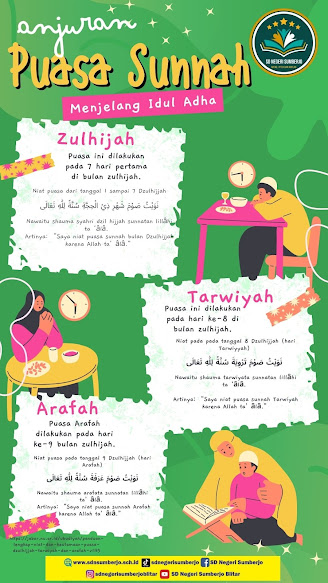 anjuran
Puasa Sunnah
Menjelang Idul Adha
SD NEGERI SUMBERJO
Zulhijah
Puasa ini dilakukan
pada 7 hari pertama
di bulan zulhijah.
Niat puasa dari tanggal 1 sampai 7 Dzulhijjah
نَوَيْتُ صَوْمَ شَهْرِ ذِى الْحِجَّةِ سُنَّةً لِلّٰهِ تَعَالَى
Nawaitu shauma syahri dzil hijjah sunnatan lillâhi
ta'âlâ.
Artinya: "Saya niat puasa sunnah bulan Dzulhijjah
karena Allah ta'âlâ."
Tarwiyah
Puasa ini dilakukan
pada hari ke-8 di
bulan zulhijah.
Niat pada pada tanggal 8 Dzulhijjah (hari
Tarwiyyah)
نَوَيْتُ صَوْمَ تَرْوِيَةَ سُنَّةً لِلّٰهِ تَعَالَى
Nawaitu shauma tarwiyata sunnatan lillâhi
ta'âlâ.
Artinya: "Saya niat puasa sunnah Tarwiyah
karena Allah ta'âlâ."
Arafah
Puasa Arafah
dilakukan pada hari
ke-9 bulan zulhijah.
Niat puasa pada tanggal 9 Dzulhijjah (hari
Arafah)
نَوَيْتُ صَوْمَ عَرَفَةَ سُنَّةً لِلّٰهِ تَعَالَى
Nawaitu shauma arafata sunnatan lillâhi
ta'âlâ.
Artinya: "Saya niat puasa sunnah Arafah
karena Allah ta'âlâ."
www.sdnsumberjo.sch.id
sdnegerisumberjo
SD Negeri Sumberjo
sdnegerisumberjoblitar
SD Negeri Sumberjo Blitar